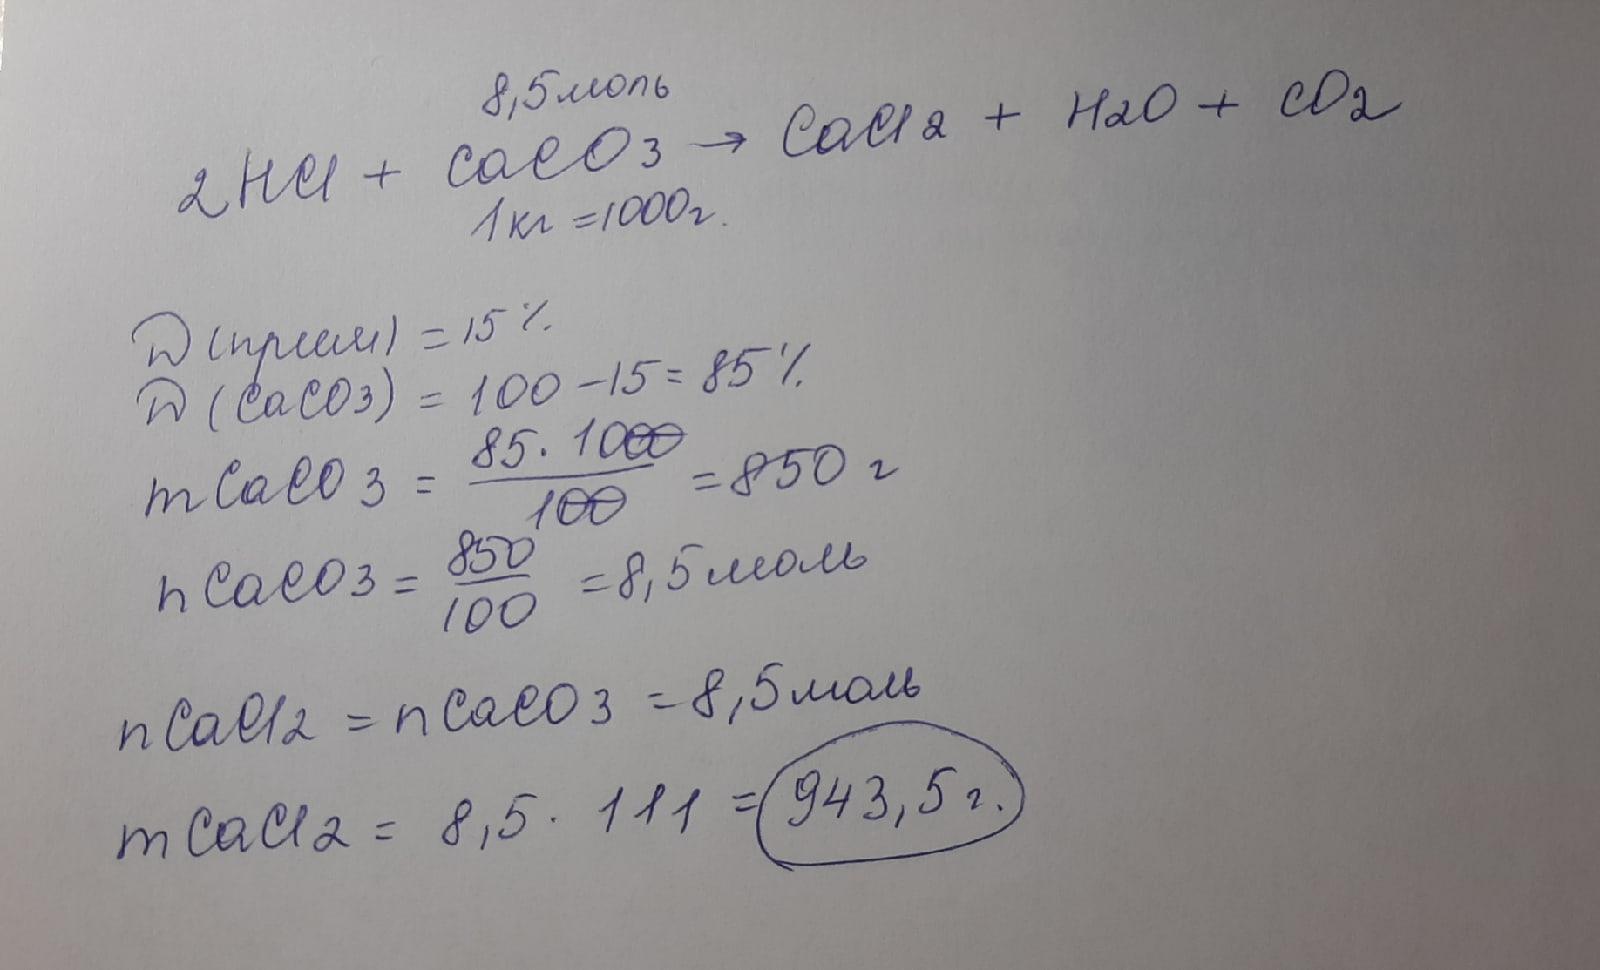 8,5 моль
2HCl + CaCO3 → CaCl2 + H2O + CO2
1 кг = 1000 г.
W (прим) = 15 %
W (CaCO3) = 100 - 15 = 85 %
m CaCO3 = 85 · 1000 / 100 = 850 г
n CaCO3 = 850 / 100 = 8,5 моль
n CaCl2 = n CaCO3 = 8,5 моль
m CaCl2 = 8,5 · 111 = 943,5 г.